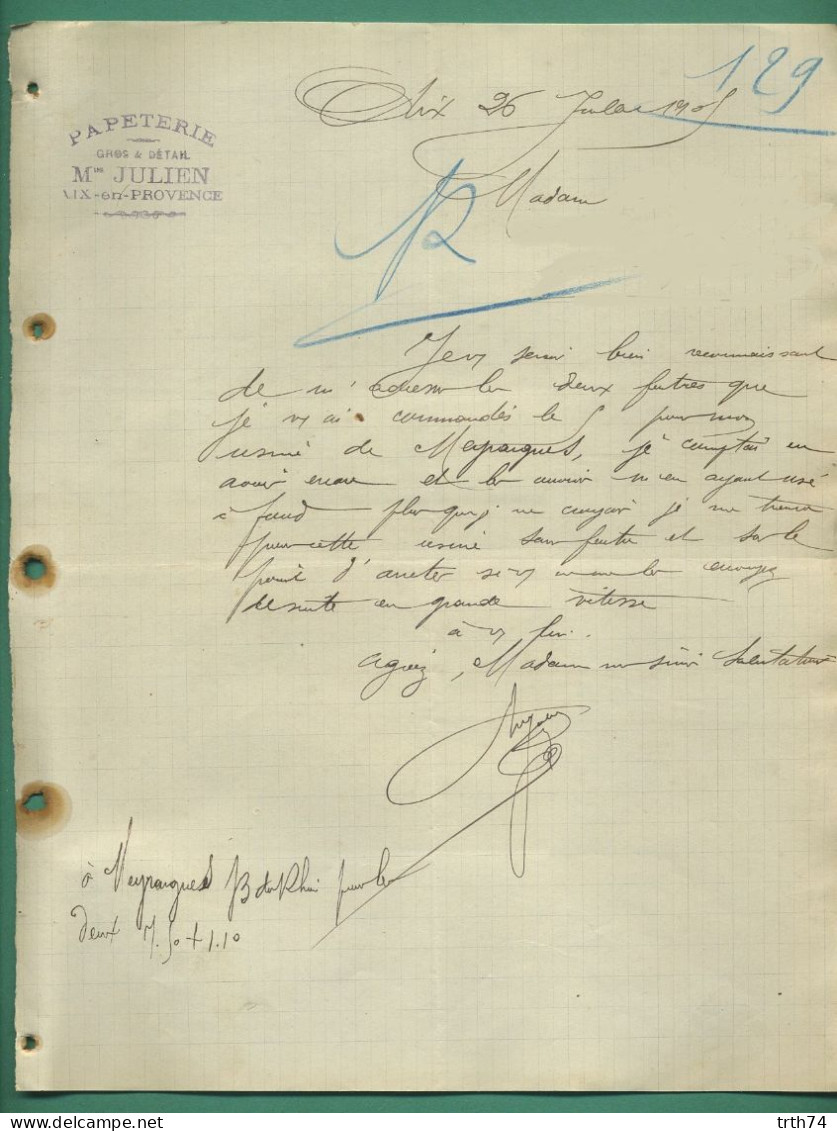 PAPETERIE
GROS & DÉTAIL
Mme JULIEN
AIX-en-PROVENCE
Aix 26 1905
129
Madam
Je vs serais bien reconnaissant
de m'adresser les deux feutres que
je vs ai commandés le 5 pour mon
usine de Meyrargues, je comptais en
avoir encore et les ouvriers m'en ayant usé
à fond plus que je ne croyais je me trouve
pour cette usine sans feutre et sur le
point d'arreter si vs ne me les envoyez
de suite en grande vitesse
à vs lire.
Agréez, Madame mes sincères Salutations
à Meyrargues B du Rhône pour les
deux 7.50 + 1.10
trth74